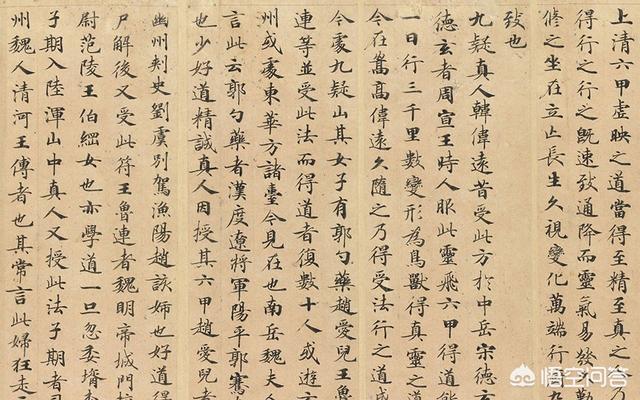 上清六甲虛映之道當得至精至真之人乃
得行之行之既速致通降而靈氣易發久勤
修之坐在立亡長生久視變化萬端行
致也
九疑真人韓偉遠昔受此方於中岳宋德玄
德玄者周宣王時人服此靈飛六甲得道能
一日行三千里數變形為鳥獸得真靈之道
今在嵩高偉遠久隨之乃得受法行之道成
今處九疑山其女子有郭勺藥趙愛兒王魯
連等並受此法而得道者復數十人或遊玄
州或處東華方諸臺今見在也南岳魏夫人
言此云郭勺藥者漢度遼將軍陽平郭騫女
也少好道精誠真人因授其六甲趙愛兒者
幽州刺史劉虞別駕漁陽趙該姊也好道得
尸解後又受此符王魯連者魏明帝城門校
尉范陵王伯綱女也亦學道一旦忽委壻李
子期入陸渾山中真人又授此法子期者司
州魏人清河王傳者也其常言此婦狂走
悟空问答